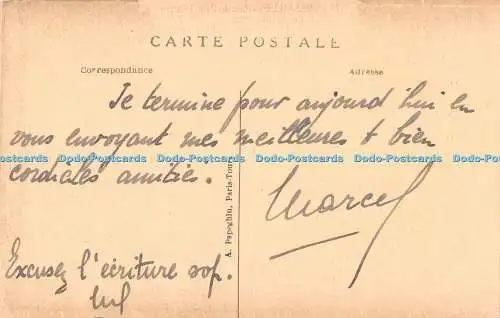 CARTE POSTALE
Correspondance
Adresse
Je termine pour aujourd'hui en
vous envoyant mes meilleures & bien
Dodo-Postcards Dodo-Postcards Dodo-Postcards Dodo-Postcards Dodo-Postcards
cordiales amitiés.
Marcel
A. Papeghin, Paris-Tou
Excusez l'écriture svp.